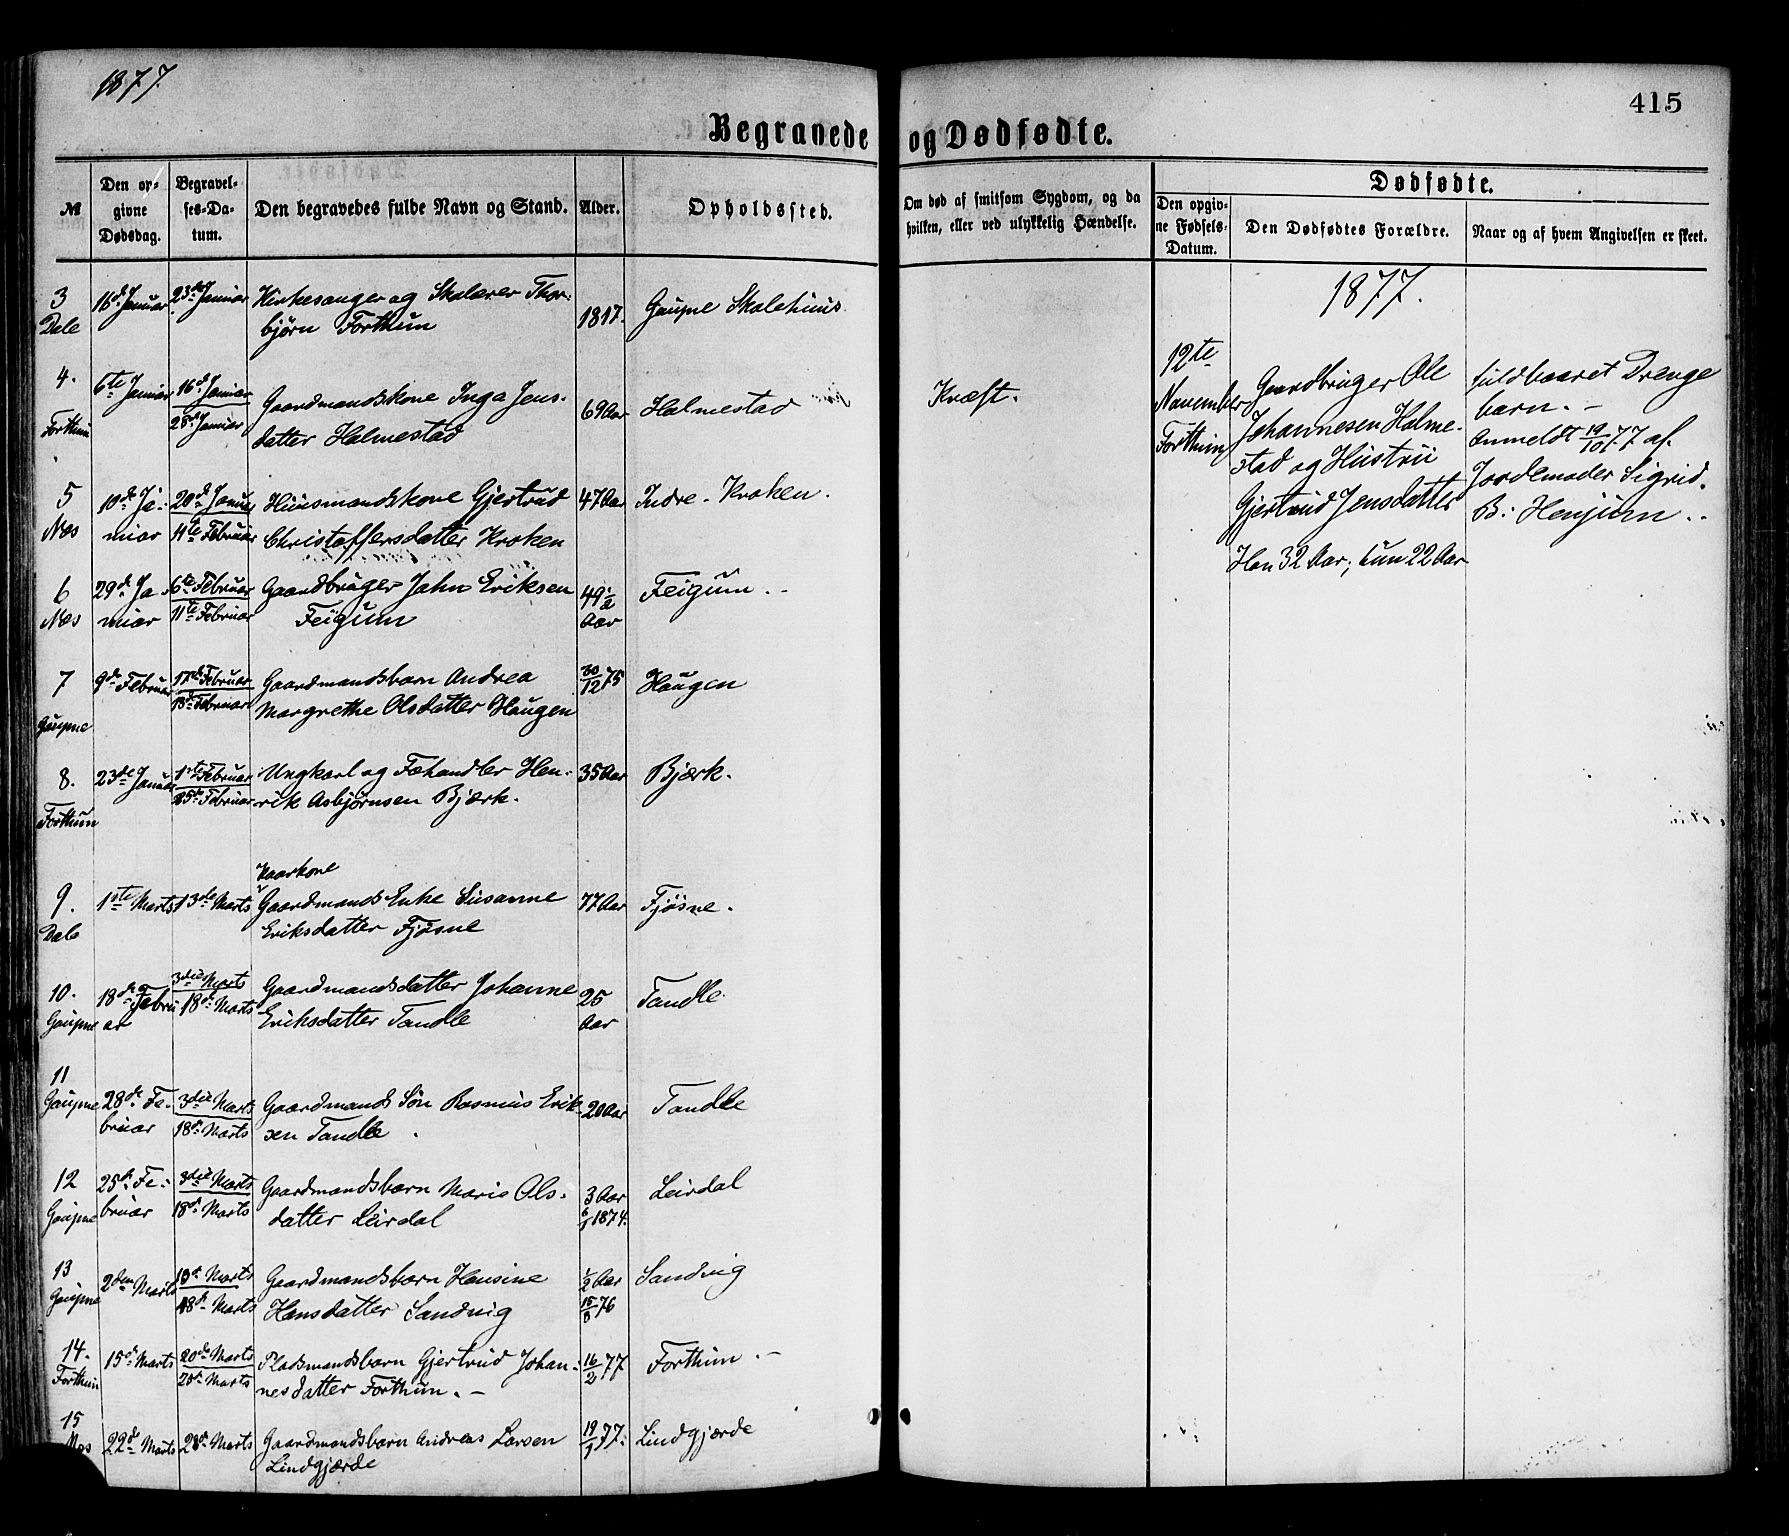 1877.
415
Begravede og Dødfødte.
№
Den opgivne Dødsdag.
Begravelses-Datum.
Den begravedes fulde Navn og Stand.
Alder.
Opholdssted.
Om død af smitsom Sygdom, og da hvilken, eller ved ulykkelig Hændelse.
Dødfødte.
Den opgivne Fødsels-Datum.
Den Dødfødtes Forældre.
Naar og af hvem Angivelsen er skeet.
3 16de Januar 23de Januar Kirkesanger og Skolærer Thor-
Dale bjørn Forthun 1817. Gaupne Skolehuus
4. 6te Januar 16de Januar Gaardmandskone Inga Jens- 69 Aar Halmestad Kræft.
Forthun 28de Januar datter Halmestad
5 10de Ja- 20de Januar Huusmandskone Gjertrud 47 Aar Indre-Kroken.
Næs nuar 11te Februar Christoffersdatter Kroken
6 29de Ja- 6te Februar Gaardbruger John Eriksen 49 1/2 Feigum
Næs nuar 11te Februar Feigum Aar
7 9de Februar 17de Februar Gaardmandsbarn Andrea 30/12 75 Haugen
Gaupne 18de Februar Margrethe Olsdatter Haugen
8. 23de Januar 1ste Februar Ungkarl og Fæhandler Hen- 35 Aar Bjærk.
Forthun 25de Februar rik Asbjørnsen Bjærk.
Kaarkone
9. 1ste Marts 13de Marts Gaardmands Enke Susanne 77 Aar Fjøsne.
Dale Eriksdatter Fjøsne
10. 18de Febru- 3die Marts Gaardmandsdatter Johanne 25 Tandle
Gaupne ar 18de Marts Eriksdatter Tandle Aar
11
Gaupne 28de Fe- 3die Marts Gaardmands Søn Rasmus Erik- 20 Aar Tandle
bruar 18de Marts sen Tandle
12 25de Fe- 3die Marts Gaardmandsbarn Maris Ols- 3 Aar Leirdal
Gaupne bruar 18de Marts datter Leirdal 6/1 1874.
13 2den Marts 10de Marts Gaardmandsbarn Hansine 1/2 Aar Sandvig
Gaupne 18de Marts Hansdatter Sandvig 15/8 76
14. 15de Marts 20de Marts Pladsmandsbarn Gjertrud Johan- 16/2 77 Forthun
Forthun 25de Marts nesdatter Forthun.
15
Næs 22de Marts 28de Marts Gaardmandsbarn Andreas Larsen 19/1 77. Lindgjærde
Lindgjærde
1877.
12te
November
Forthun
Gaardbruger Ole
Johannesen Halme-
stad og Hustru
Gjertrud Jensdatter
Han 32 Aar, hun 22 Aar
fuldbaaret Drenge
barn.
Anmeldt 19/10 77 af
Jordemoder Sigrid
B. Henjum